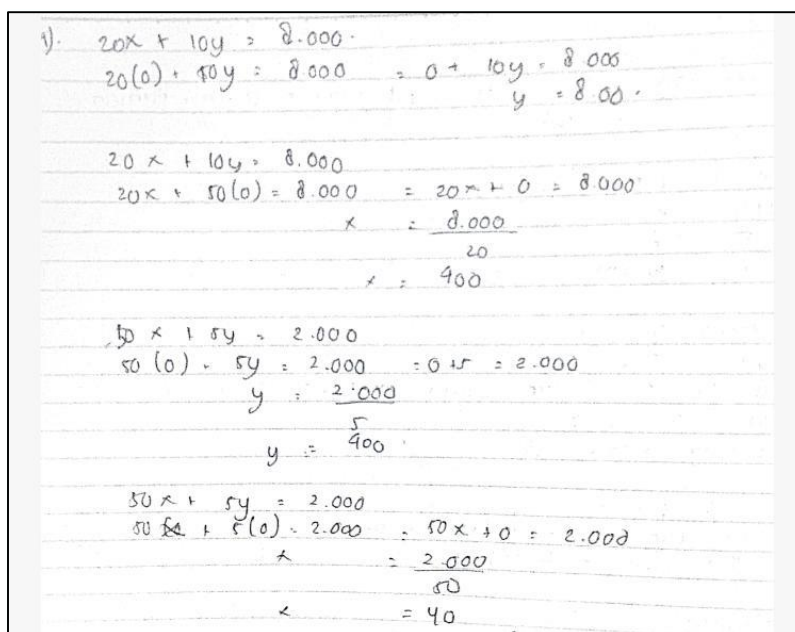 1). 20x + 10y = 8.000.
20(0) + 10y = 8.000 = 0 + 10y = 8.000
y = 8.00.
20x + 10y = 8.000
20x + 50(0) = 8.000 = 20x + 0 = 8.000
x = 8.000
20
x = 400
50x + 5y = 2.000
50(0) + 5y = 2.000 = 0 + 5 = 2.000
y = 2.000
5
y = 400
50x + 5y = 2.000
50 + 5(0) = 2.000 = 50x + 0 = 2.000
x = 2.000
50
x = 40